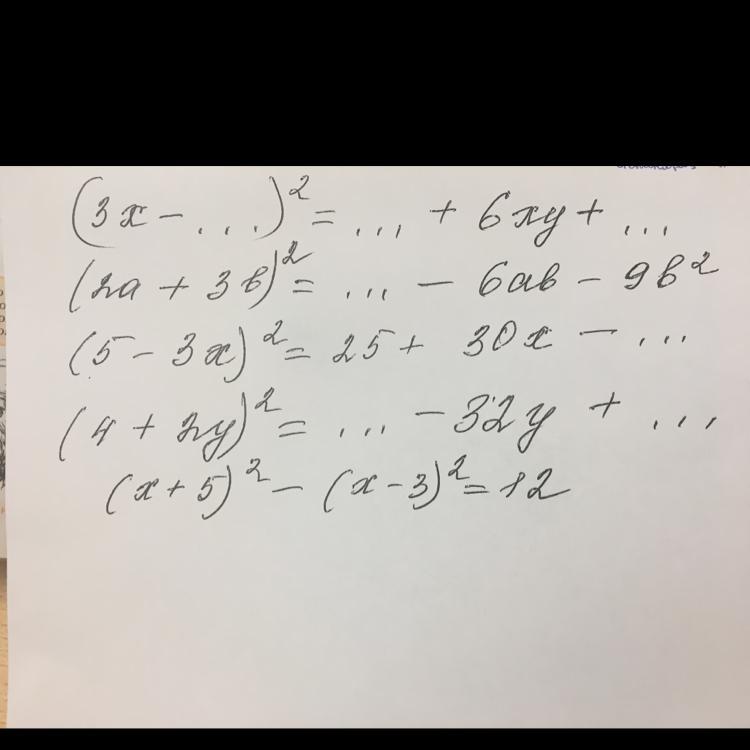 (3x - ...)² = ... + 6xy + ...
(2a + 3b)² = ... - 6ab - 9b²
(5 - 3x)² = 25 + 30x - ...
(4 + 2y)² = ... - 32y + ...
(x + 5)² - (x - 3)² = 12